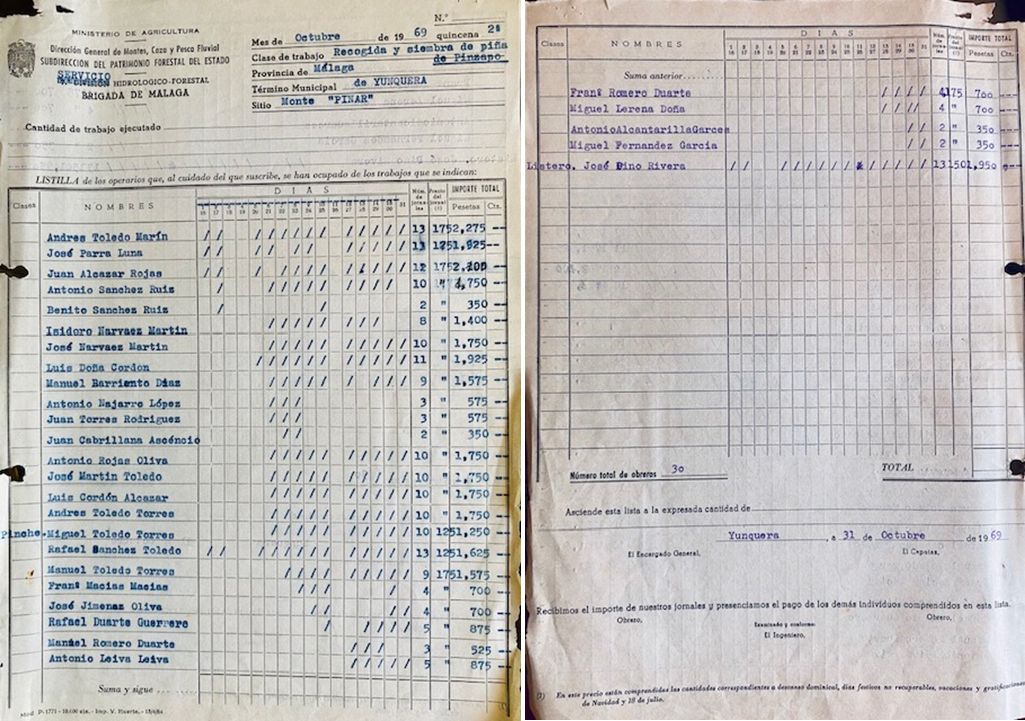 MINISTERIO DE AGRICULTURA
Dirección General de Montes, Caza y Pesca Fluvial
SUBDIRECCIÓN DEL PATRIMONIO FORESTAL DEL ESTADO
SERVICIO
HIDROLOGICO-FORESTAL
BRIGADA DE MALAGA
N.º
Mes de Octubre de 19 69 quincena 2ª
Clase de trabajo Recogida y siembra de piña
de Pinzapo
Provincia de Málaga
Término Municipal de YUNQUERA
Sitio Monte "PINAR"
Cantidad de trabajo ejecutado
LISTILLA de los operarios que, al cuidado del que suscribe, se han ocupado de los trabajos que se indican:
Clases NOMBRES DIAS Núm. de jornales Precio del jornal (1) IMPORTE TOTAL
Pesetas Cts.
16 17 18 19 20 21 22 23 24 25 26 27 28 29 30 31
Andres Toledo Marín / / / / / / / / / / / / / 13 175 2,275 --
José Parra Luna 13 175 1,925 --
Juan Alcazar Rojas 12 175 --
Antonio Sanchez Ruiz 10 1,750 --
Benito Sanchez Ruiz / / 2 " 350 --
Isidoro Narvaez Martin / / / / / / / / 8 " 1,400 --
José Narvaez Martin / / / / / / / / / / 10 " 1,750 --
Luis Doña Cordon / / / / / / / / / / / 11 " 1,925 --
Manuel Barriento Diaz / / / / / / / / / 9 " 1,575 --
Antonio Najarro López / / / 3 " 575 --
Juan Torres Rodriguez / / / 3 " 575 --
Juan Cabrillana Ascéncio / / 2 " 350 --
Antonio Rojas Oliva / / / / / / / / / / 10 " 1,750 --
José Martin Toledo / / / / / / / / / / 10 " 1,750 --
Luis Cordón Alcazar / / / / / / / / / / 10 " 1,750 --
Andres Toledo Torres / / / / / / / / / / 10 " 1,750 --
Pinche. Miguel Toledo Torres / / / / / / / / / / 10 125 1,250 --
Rafael Sanchez Toledo / / / / / / / / / / / / / 13 125 1,625 --
Manuel Toledo Torres / / / / / / / / / 9 175 1,575 --
Franº Macias Macias / / / / 4 " 700 --
José Jimenaz Oliva / / / / 4 " 700 --
Rafael Duarte Guerrero / / / / / 5 " 875 --
Manuel Romero Duarte / / / 3 " 525 --
Antonio Leiva Leiva / / / / / 5 " 875 --
Suma y sigue
Mod P-1771 - 10.000 ets.- Imp. V. Huerta.-
Clases NOMBRES DIAS Núm. de jornales Precio del jornal (1) IMPORTE TOTAL
Pesetas Cts.
Suma anterior
Franº Romero Duarte / / / / 4 175 700 ---
Miguel Lerena Doña / / / / 4 " 700 ---
Antonio Alcantarilla Garces / / 2 " 350 ---
Miguel Fernandez Garcia / / 2 " 350 ---
Listero. José Pino Rivera 13 150 1,950 ---
Número total de obreros 30
TOTAL
Asciende esta lista a la expresada cantidad de
Yunquera, a 31 de Octubre de 19 69
El Encargado General, El Capataz,
Recibimos el importe de nuestros jornales y presenciamos el pago de los demás individuos comprendidos en esta lista.
Obrero, Obrero,
Examinado y conforme:
El Ingeniero,
(1) En este precio están comprendidas las cantidades correspondientes a descanso dominical, días festivos no recuperables, vacaciones y gratificaciones
de Navidad y 18 de julio.